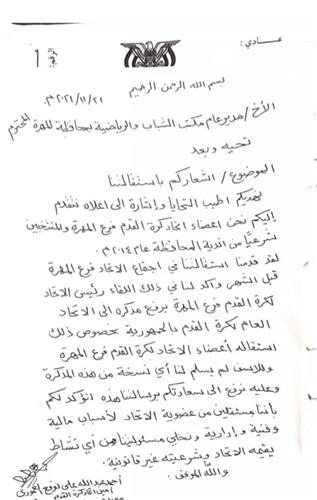 عـــادي :
بسم الله الرحمن الرحيم
٢٠٢١/١١/٢١ م.
الأخ / مدير عام مكتب الشباب والرياضية بمحافظة المهرة المحترم
تحيه وبعد
الموضوع / اشعاركم باستقالتنا
نهديكم اطيب التحايا وإشارة الى اعلاه نتقدم
إليكم نحن اعضاء اتحاد كرة القدم فرع المهرة والمنتخبين
شرعياً من اندية المحافظة عام ٢٠١٤ م.
لقد قدمنا استقالتنا في اجتماع الاتحاد فرع المهرة
قبل الشهر واكد لنا في ذلك اللقاء رئيس الاتحاد
لكرة القدم فرع المهرة برفع مذكره الى الاتحاد
العام لكرة القدم بالجمهورية بخصوص ذلك
استقاله أعضاء الاتحاد لكرة القدم فرع المهرة
وللاسف لم يسلم لنا أي نسخة من هذه المذكرة
وعليه نرفع الى سعادتكم برسالتنا هذه لنؤكد لكم
بأننا مستقلين من عضوية الاتحاد لأسباب مالية
وفنية وإدارية ونخلي مسئوليتنا من أي نشاط
يقيمه الاتحاد وشرعيته غير قانونية.
والله الموفق.
احمد عبدالله علي
أمين اتحاد كرة القدم